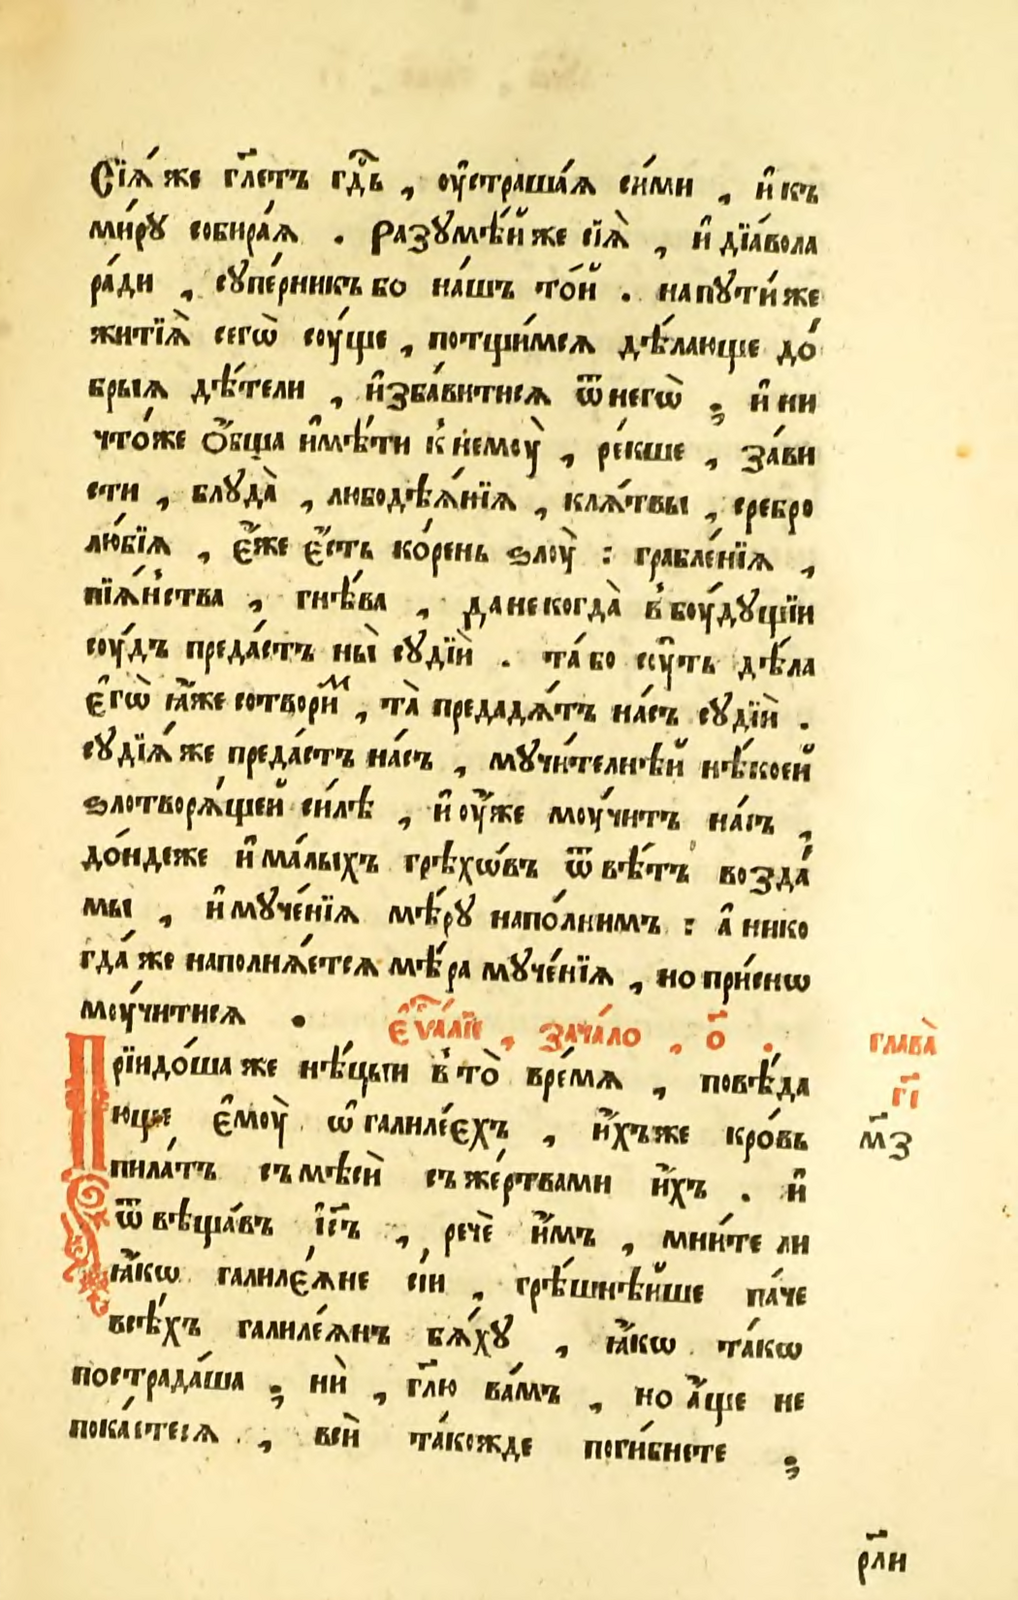 Сїѧ́ же гл҃етъ гд҇ь , оу҆страша́ѧ си́ми , и҆ къ
ми́рꙋ собира́ѧ . Разꙋмѣ́й же сїѧ̀ , и҆ дїа́вола
ра́ди , сꙋпе́рникъ бо на́шъ то́й . на пꙋти́ же
житїѧ̀ сегѡ̀ сꙋ́ще , потщи́мсѧ дѣ́лающе до́
брыѧ дѣ́тели , и҆зба́витисѧ ѿ негѡ̀ ; и҆ ни
что́же ѻ҆́бща и҆мѣ́ти к̾ немоу̀ , ре́кше , за́ви
сти , блꙋда̀ , любодѣѧ́нїѧ , клѧ́твы , сребро
лю́бїѧ , є҆́же є҆́сть ко́рень ѕлоу̀ : грабле́нїѧ ,
пїѧ́н̾ства , гнѣ́ва , да некогда̀ в̾ боу́дꙋщїи
соу́дъ преда́стъ ны̀ сꙋдїѝ . та́ бо сꙋ́ть дѣ́ла
є҆гѡ̀ ꙗ҆́же сотвори́м , та̀ предадѧ́тъ на́съ сꙋдїѝ .
сꙋдїѧ́ же преда́стъ на́съ , мꙋчи́телнѣй нѣ́коей
ѕлотворѧ́щей си́лѣ , и҆ оу҆́же моу́читъ на́съ ,
до́ндеже и҆ ма́лыхъ грѣхѡ́въ ѿвѣ́тъ возда́
мы , и҆ мꙋче́нїѧ мѣ́рꙋ напо́лнимъ : а҆ нико
гда́ же наполнѧ́етсѧ мѣ́ра мꙋче́нїѧ , но при́снѡ
моу́читисѧ . є҆ѵⷢ҇а́лїе , зача́ло , о҃ .
глава̀
гі҃
м҃з
Прїидо́ша же нѣ́цыи в̾ то̀ вре́мѧ , повѣ́да
юще є҆моу̀ ѡ҆ галиле́єхъ , и҆́хъже кро́вь
пила́тъ съмѣсѝ съ же́ртвами и҆́хъ . и҆
ѿвѣща́въ і҆с҃ъ , речѐ и҆̀мъ , мни́те ли
ꙗ҆́кѡ галилє́ѧне сі́и , грѣ́шнѣйше па́че
всѣ́хъ галиле́ѧнъ бѧ́хꙋ , ꙗ҆́кѡ та́кѡ
пострада́ша ; нѝ , гл҃ю ва́мъ , но а҆́ще не
пока́етесѧ , всѝ та́кожде поги́бнете ;
рл҃и